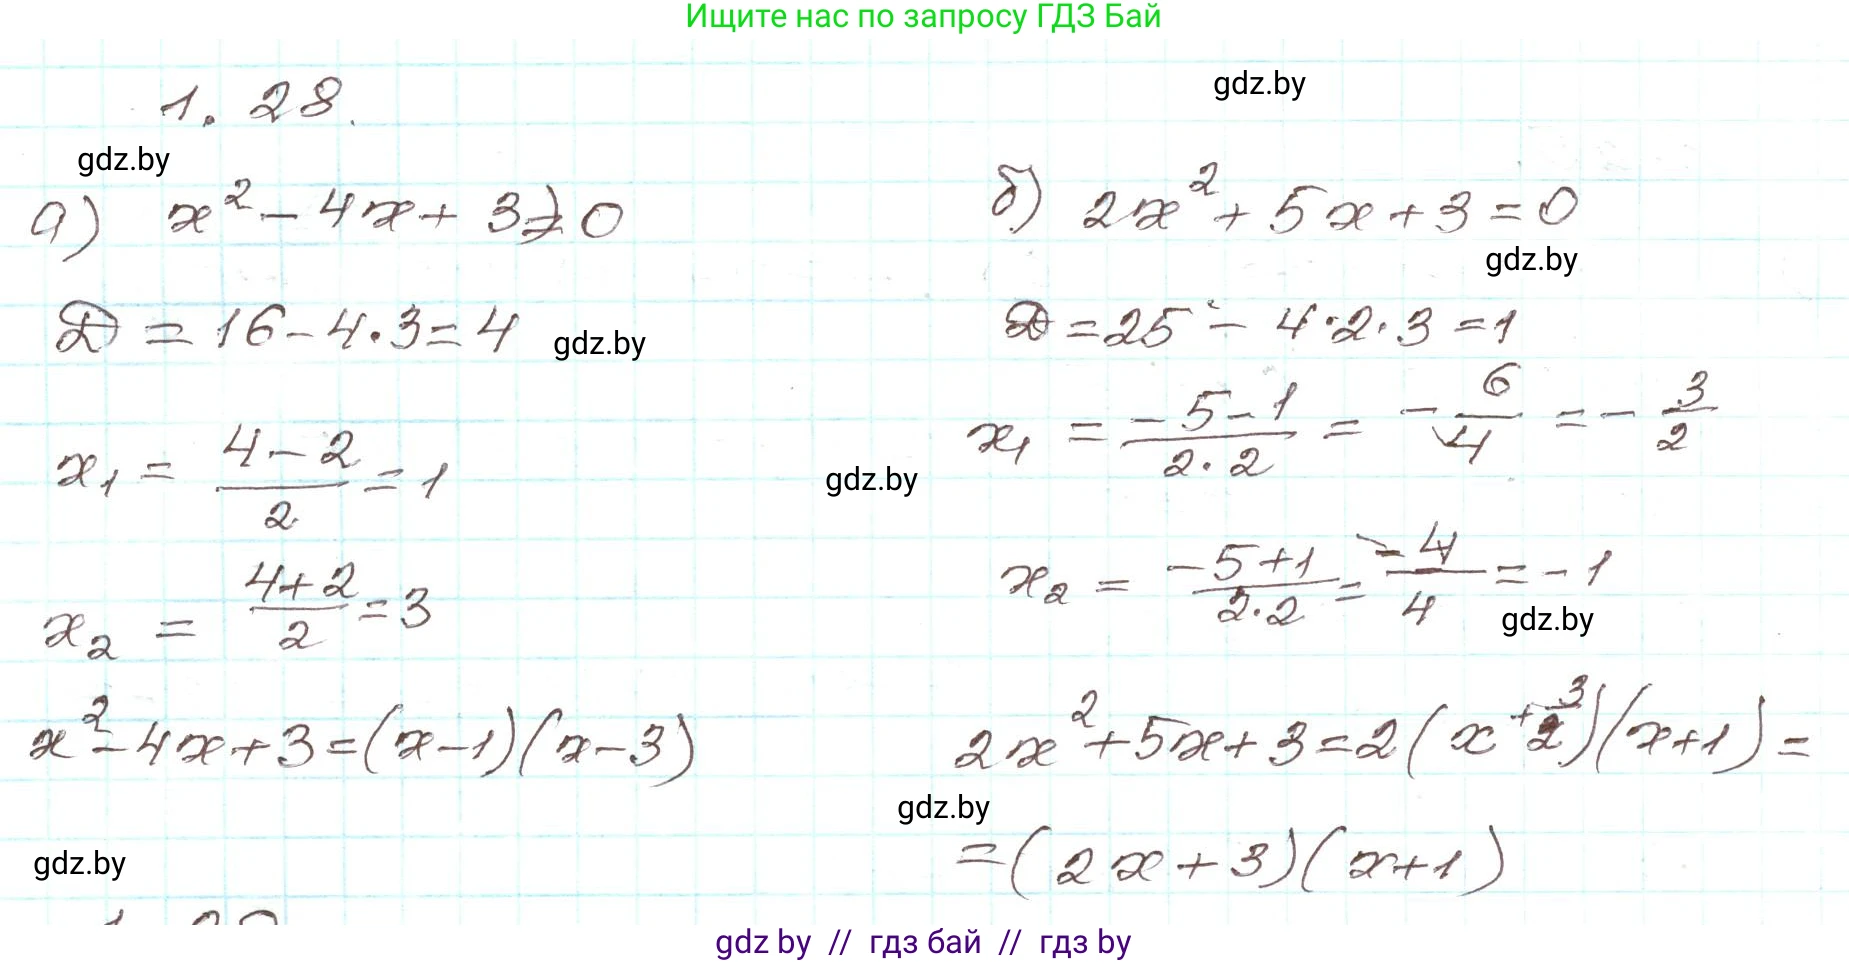 Ищите нас по запросу ГДЗ Бай
1. 28.
gdz.by
gdz.by
а) x² - 4x + 3 = 0
D = 16 - 4·3 = 4
gdz.by
x₁ = (4 - 2)/2 = 1
x₂ = (4+2)/2 = 3
x² - 4x + 3 = (x-1)(x-3)
gdz.by
б) 2x² + 5x + 3 = 0
gdz.by
D = 25 - 4·2·3 = 1
x₁ = (-5-1)/(2·2) = -6/4 = -3/2
gdz.by
x₂ = (-5+1)/(2·2) = -4/4 = -1
gdz.by
2x² + 5x + 3 = 2(x + 3/2)(x+1) =
gdz.by
= (2x + 3)(x+1)
gdz by // гдз бай // гдз by